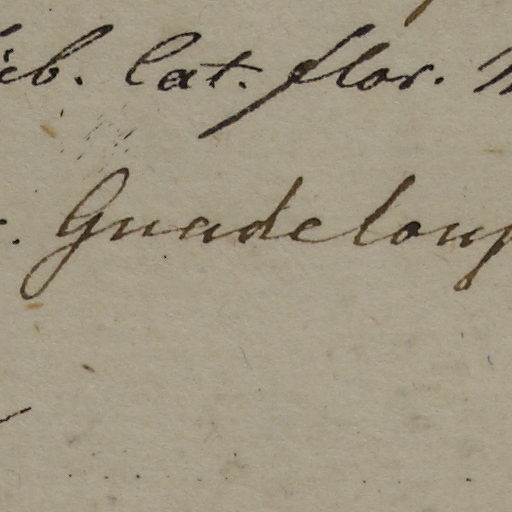 ieb. Cat. flor.
. Guadeloup